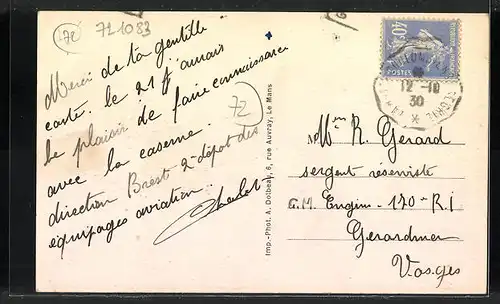 72
721083
Merci de ta gentille
carte. le 21 j'aurais
le plaisir de faire connaissance
avec la caserne.
direction Brest 2e dépôt des
équipages aviation.
72
Imp.-Phot. A. Dolbeau, 6, rue Auvray, Le Mans
40c
POSTES
12-10
30
Mr R. Gerard
sergent reserviste
G.M. Engim - 170 - R.I
Gerardmer
Vosges